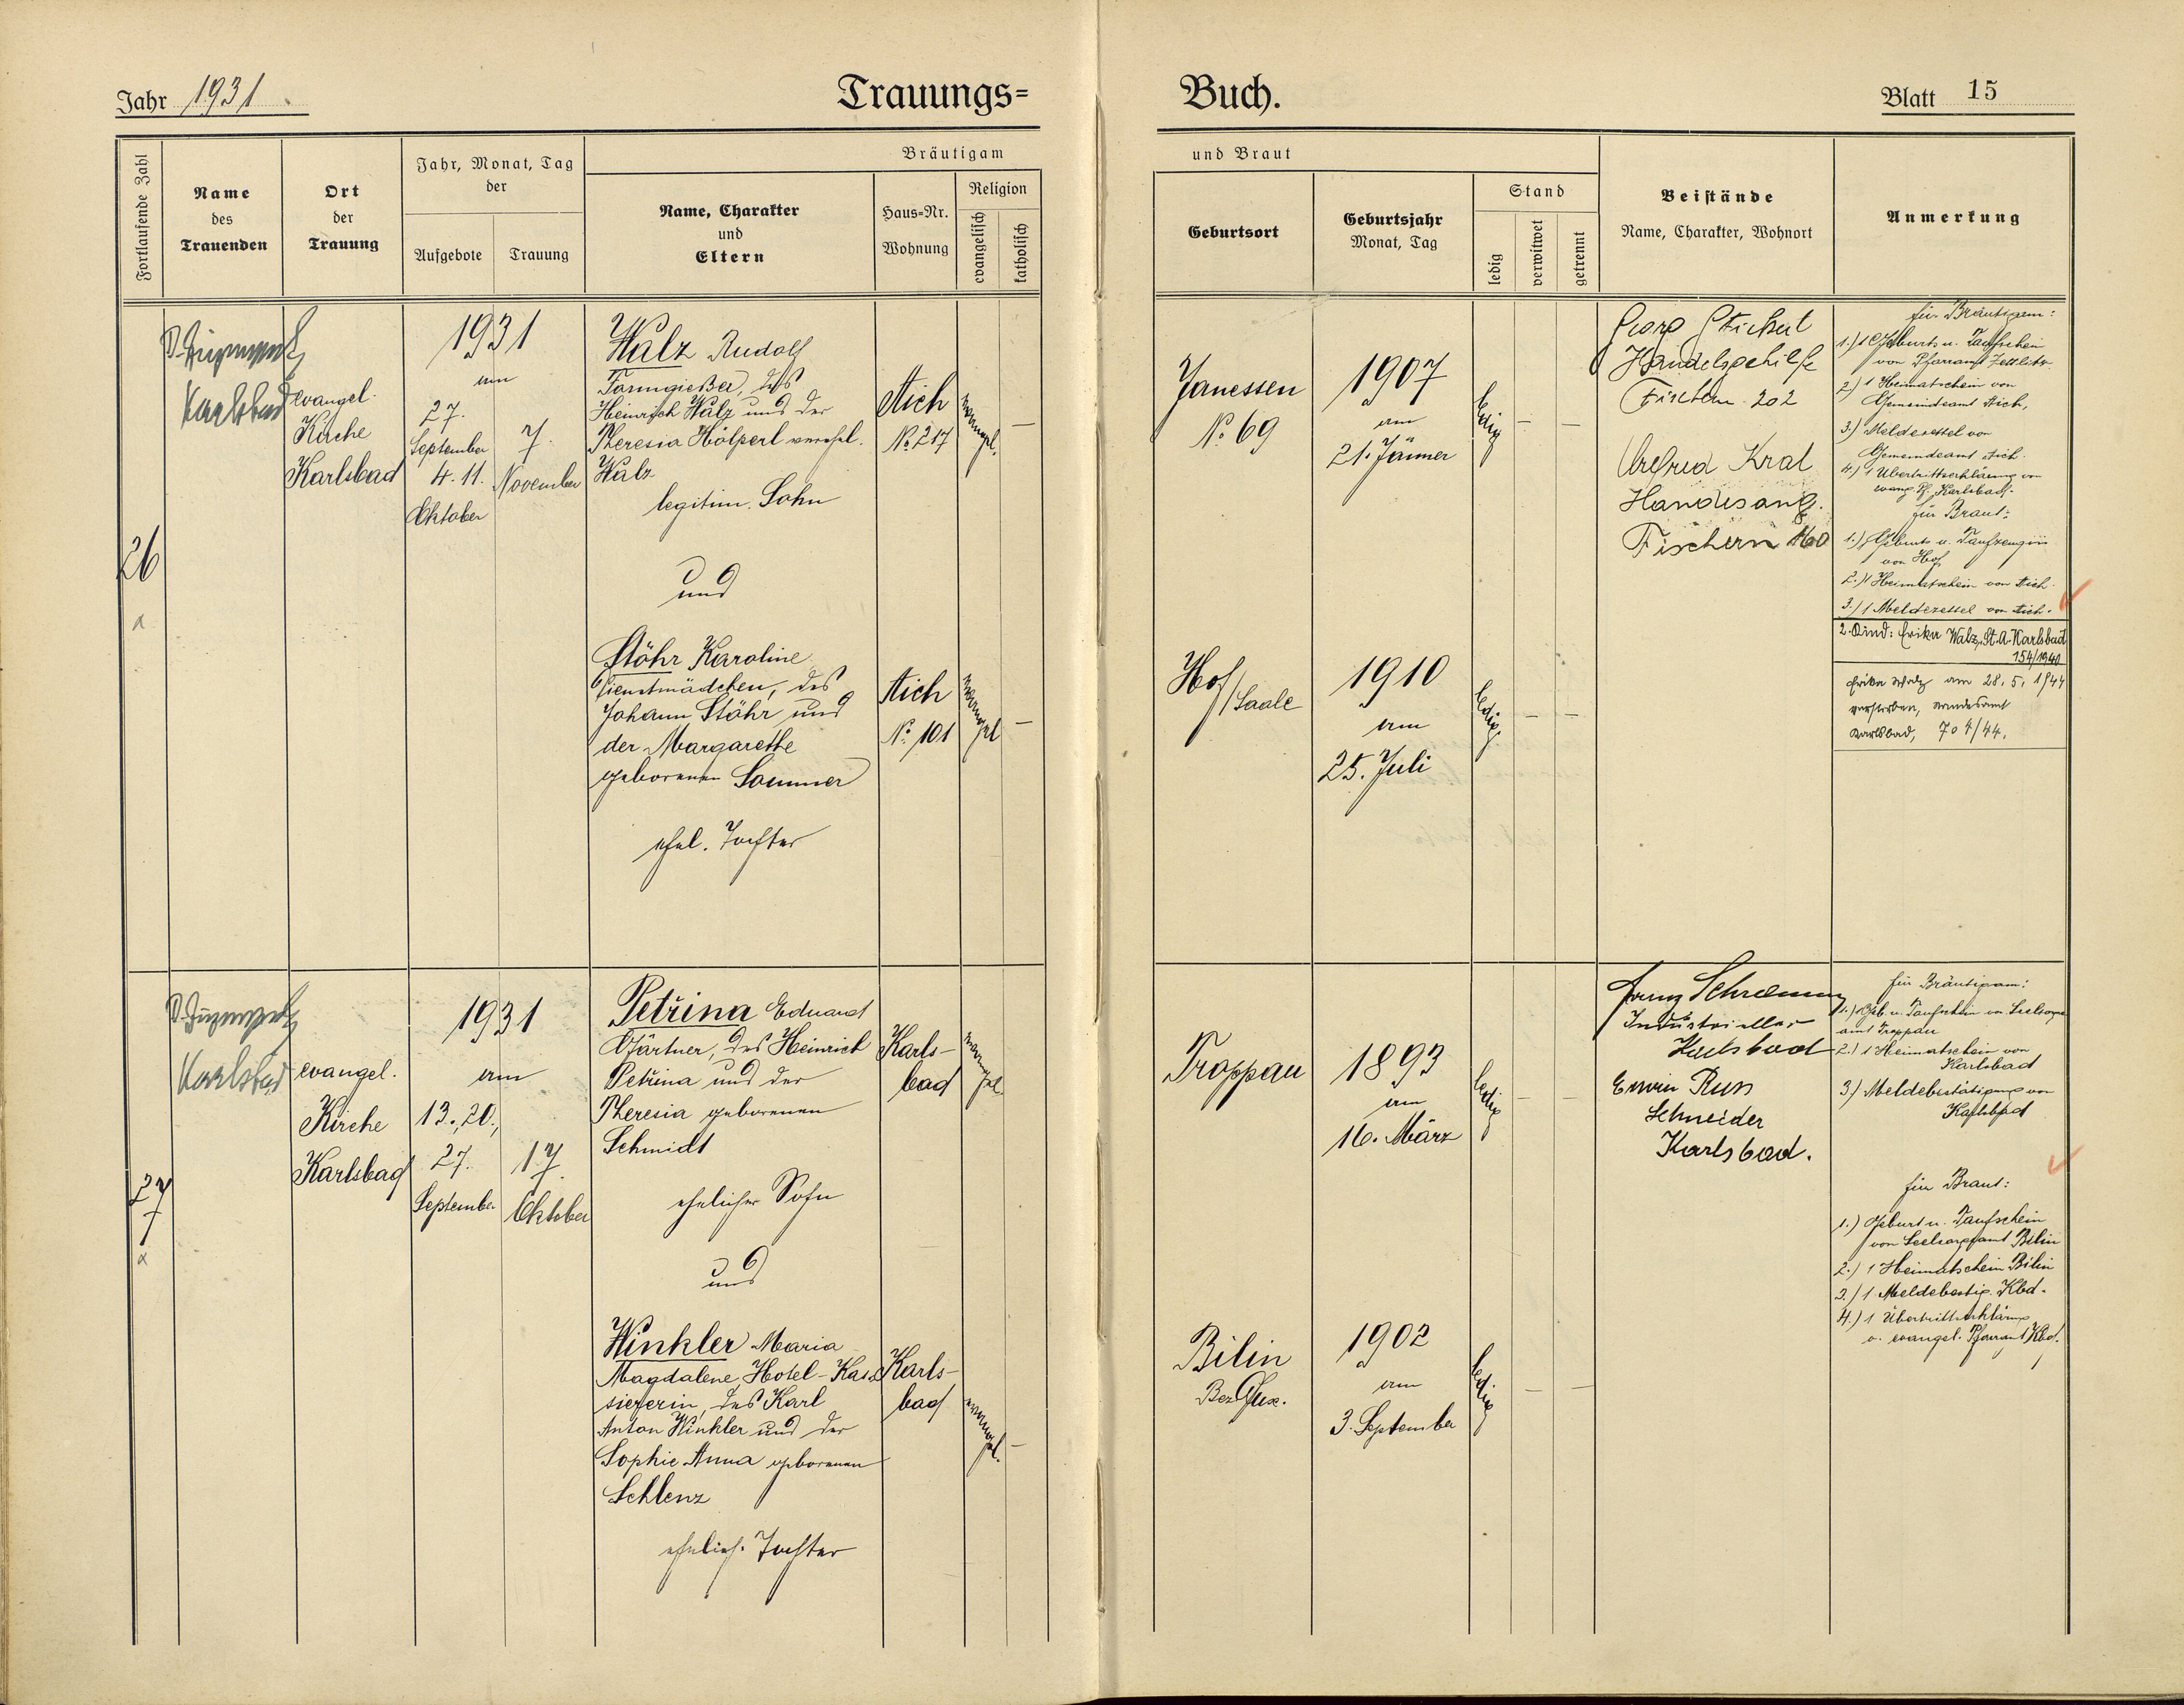 Jahr 1931.
Trauungs=
Buch.
Blatt 15
Fortlaufende Zahl
Name
des
Trauenden
Ort
der
Trauung
Jahr, Monat, Tag
der
Aufgebote
Trauung
Bräutigam
Name, Charakter
und
Eltern
Haus=Nr.
Wohnung
Religion
evangelisch
katholisch
und Braut
Geburtsort
Geburtsjahr
Monat, Tag
Stand
ledig
verwitwet
getrennt
Beistände
Name, Charakter, Wohnort
Anmerkung
26
Karlsbad
evangel.
Kirche
Karlsbad
1931
am
27.
September
4. 11.
Oktober
7.
November
Walz Rudolf
Formgießer, des
Heinrich Walz und der
Theresia Hölperl verehel.
Walz
legitim. Sohn
und
Stöhr Karoline
Dienstmädchen, des
Johann Stöhr und
der Margarethe
geborenen Sommer
ehel. Tochter
Aich
No. 217
evangel.
—
Aich
No. 101
evangel
—
Janessen
No. 69
1907
am
21. Jänner
ledig
— —
Hof/Saale
1910
am
25. Juli
ledig
— —
Georg
Handelsgehilfe
Fischern 202
Kral
Handelsang.
Fischern 160
für Bräutigam:
1.) 1 Geburts u. Taufschein
von Pfarramt Zettlitz.
2.) 1 Heimatschein von
Gemeindeamt Aich,
3.) Meldezettel von
Gemeindeamt Aich.
4.) 1 Übertrittserklärung von
evang. Pf. Karlsbad.
für Braut:
1.) 1 Geburts u. Taufzeugnis
von Hof
2.) 1 Heimatschein von Aich.
3.) 1 Meldezettel von Aich.
2. Kind: Erika Walz, St. A. Karlsbad
154/1940
Erika Walz am 28. 5. 1944
verstorben, Standesamt
Karlsbad, 704/44.
27
Karlsbad
evangel.
Kirche
Karlsbad
1931
am
13., 20.,
27.
September
17.
Oktober
Petřina Eduard
Gärtner, des Heinrich
Petřina und der
Theresia geborenen
Schmidt
ehelicher Sohn
und
Winkler Maria
Magdalene, Hotel-Kas-
sierin, des Karl
Anton Winkler und der
Sophie Anna geborenen
Schlenz
ehelich. Tochter
Karls-
bad
evangel.
Karls-
bad
evangel.
—
Troppau
1893
am
16. März
ledig
— —
Bilin
Bez. Dux.
1902
am
3. September
ledig
— —
Franz Schramm
Industrieller
Karlsbad
Erwin Russ
Schneider
Karlsbad.
für Bräutigam:
1.) 1 Geb. u. Taufschein v. Seelsorge
amt Troppau
2.) 1 Heimatschein von
Karlsbad
3.) Meldebestätigung von
Karlsbad
für Braut:
1.) Geburt u. Taufschein
von Seelsorgeamt Bilin
2.) 1 Heimatschein Bilin
3.) 1 Meldebestig. Kbd.
4.) 1 Übertrittserklärung
v. evangel. Pfarramt Kbd.